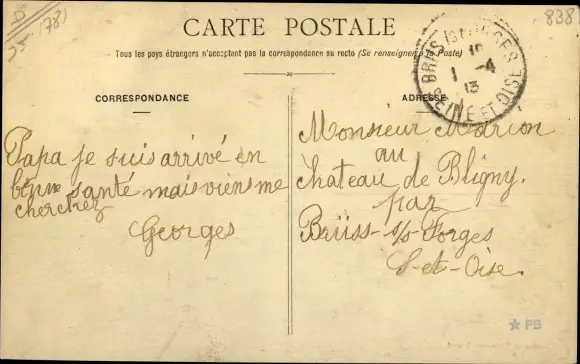 CARTE POSTALE
Tous les pays étrangers n'acceptent pas la correspondance au recto (Se renseigner à la Poste)
838
BRIIS S/S FORGES
18
1 -4
13
SEINE ET OISE
CORRESPONDANCE
Papa je suis arrivé en
bonne santé mais viens me
cherchez
Georges
ADRESSE
Monsieur Marion
au
château de Bligny.
par
Briiss-s/s Forges
S-et-Oise.
PB